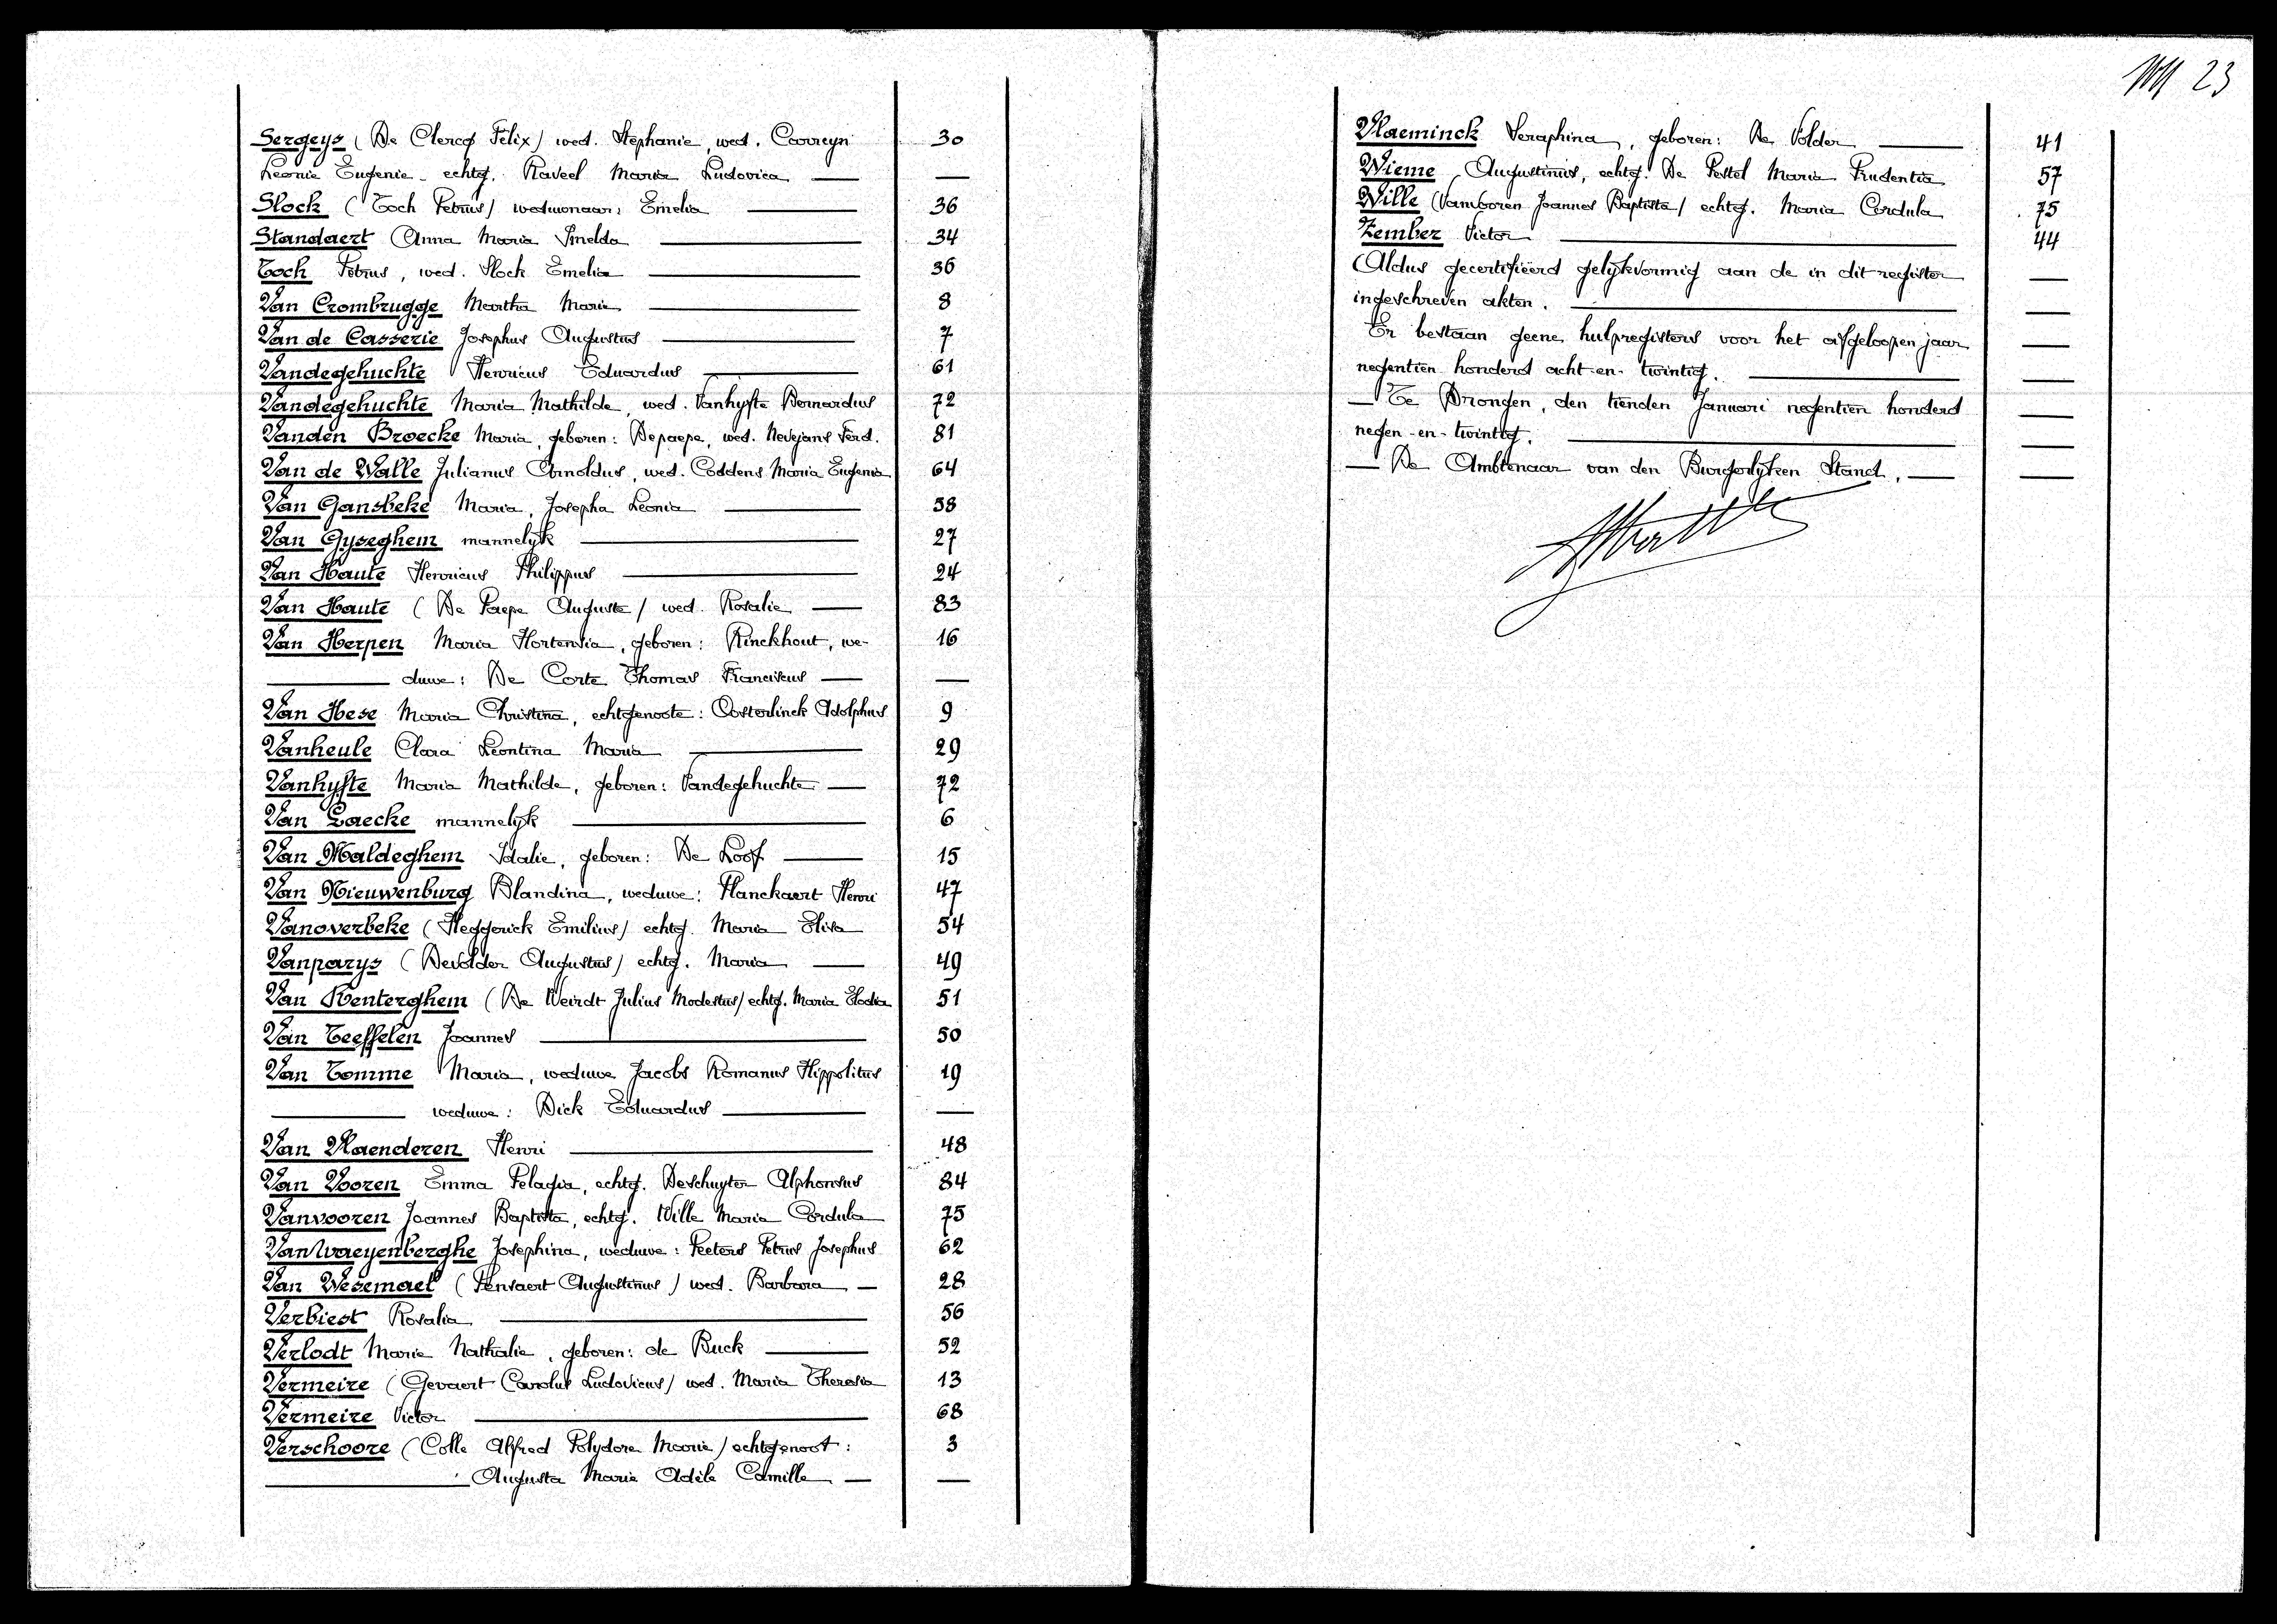 Sergeys (De Clercq Felix) wed. Stephanie, wed. Carreyn 30
Leonie Eugenie - echtg. Raveel Maria Ludovica —
Slock (Toch Petrus) weduwnaar: Emelia 36
Standaert Anna Maria Imelda 34
Toch Petrus, wed. Slock Emelia 36
Van Crombrugge Martha Maria 8
Van de Casserie Josephus Augustus 7
Vandegehuchte Henricus Eduardus 61
Vandegehuchte Maria Mathilde, wed. Vanhyfte Bernardus 72
Vanden Broecke Maria, geboren: Depaepe, wed. Nevejans Ferd. 81
Van de Walle Julianus Arnoldus, wed. Coddens Maria Eugenia 64
Van Gansbeke Maria, Josepha Leonia 58
Van Gyseghem mannelyk 27
Van Haute Henricus Philippus 24
Van Haute (De Paepe Auguste) wed. Rosalie 83
Van Herpen Maria Hortensia, geboren: Rinckhout, we- 16
duwe: De Corte Thomas Franciscus —
Van Hese Maria Christina, echtgenoote: Oosterlinck Adolphus 9
Vanheule Clara Leontina Maria 29
Vanhyfte Maria Mathilde, geboren: Vandegehuchte 72
Van Laecke mannelyk 6
Van Maldeghem Idalie, geboren: De Loof 15
Van Nieuwenburg Blandina, weduwe: Planckaert Henri 47
Vanoverbeke (Heggerick Emilius) echtg. Maria Elisa 54
Vanparys (Devolder Augustus) echtg. Maria 49
Van Renterghem (De Weirdt Julius Modestus) echtg. Maria Elodia 51
Van Teeffelen Joannes 50
Van Tomme Maria, weduwe Jacobs Romanus Hippolitus 19
weduwe: Dick Eduardus —
Van Vlaenderen Henri 48
Van Vooren Emma Pelagia, echtg. Deschuyter Alphonsus 84
Vanvooren Joannes Baptista, echtg. Wille Maria Cordula 75
Van Waeyenberghe Josephina, weduwe: Peeters Petrus Josephus 62
Van Wesemael (Pensaert Augustinus) wed. Barbara 28
Verbiest Rosalia 56
Verlodt Marie Nathalie, geboren: de Buck 52
Vermeire (Gevaert Carolus Ludovicus) wed. Maria Theresia 13
Vermeire Victor 68
Verschoore (Colle Alfred Polydore Marie) echtgenoot: 3
Augusta Maria Adèle Camille —
23
Vlaeminck Seraphina, geboren: De Volder 41
Wieme Augustinus, echtg. De Pestel Maria Prudentia 57
Wille (Vanvooren Joannes Baptista) echtg. Maria Cordula 75
Zember Victor 44
Aldus gecertifiëerd gelykvormig aan de in dit register —
ingeschreven akten. —
Er bestaan geene hulpregisters voor het afgeloopen jaar —
negentien honderd acht-en-twintig. —
— Te Drongen, den tienden Januari negentien honderd —
negen-en-twintig. —
— De Ambtenaar van den Burgerlyken Stand, —